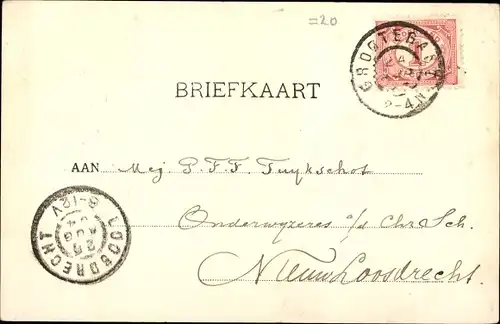 =20
GROOTEBA
2-4N
BRIEFKAART
AAN Mej. P. F. F. Tuykschot
Onderwijzeres a/d Chr. Sch.
Nieuw Loosdrecht.
LOOSDRECHT
25
AUG
8-12V